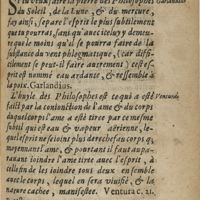 Si tu veux faire la pierre des Philosophes Garlandius.
du Soleil, de la Lune, & du mercure,
fay ainsi, separe l'esprit le plus subtilement
que tu pourras, sans qu'auec iceluy y demeu-
re que le moins qu'il se pourra faire de la
substance du vent phlegmatique, (car diffi-
cilement se peut-il faire autrement) cest es-
prit est nommé eau ardante, & ressemble à
la poix. Garlandius.
L'huyle des Philosophes est ce qui a esté Ventura de
faict par la conionction de l'ame & du corps
duquel corps l'ame a esté tiree par ce mesme
subtil que eau & vapeur aërienne, le-
quel esprit ne se ioint plus derechef au corps q̃
moyennant l'ame, & pourtant il faut aupa-
rauant ioindre l'ame tiree auec l'esprit, à
celle fin de les ioindre tous deux ensemble
auec le corps, lequel en sera viuifié, & la
nature cachee, manifestee. Ventura c. 21.